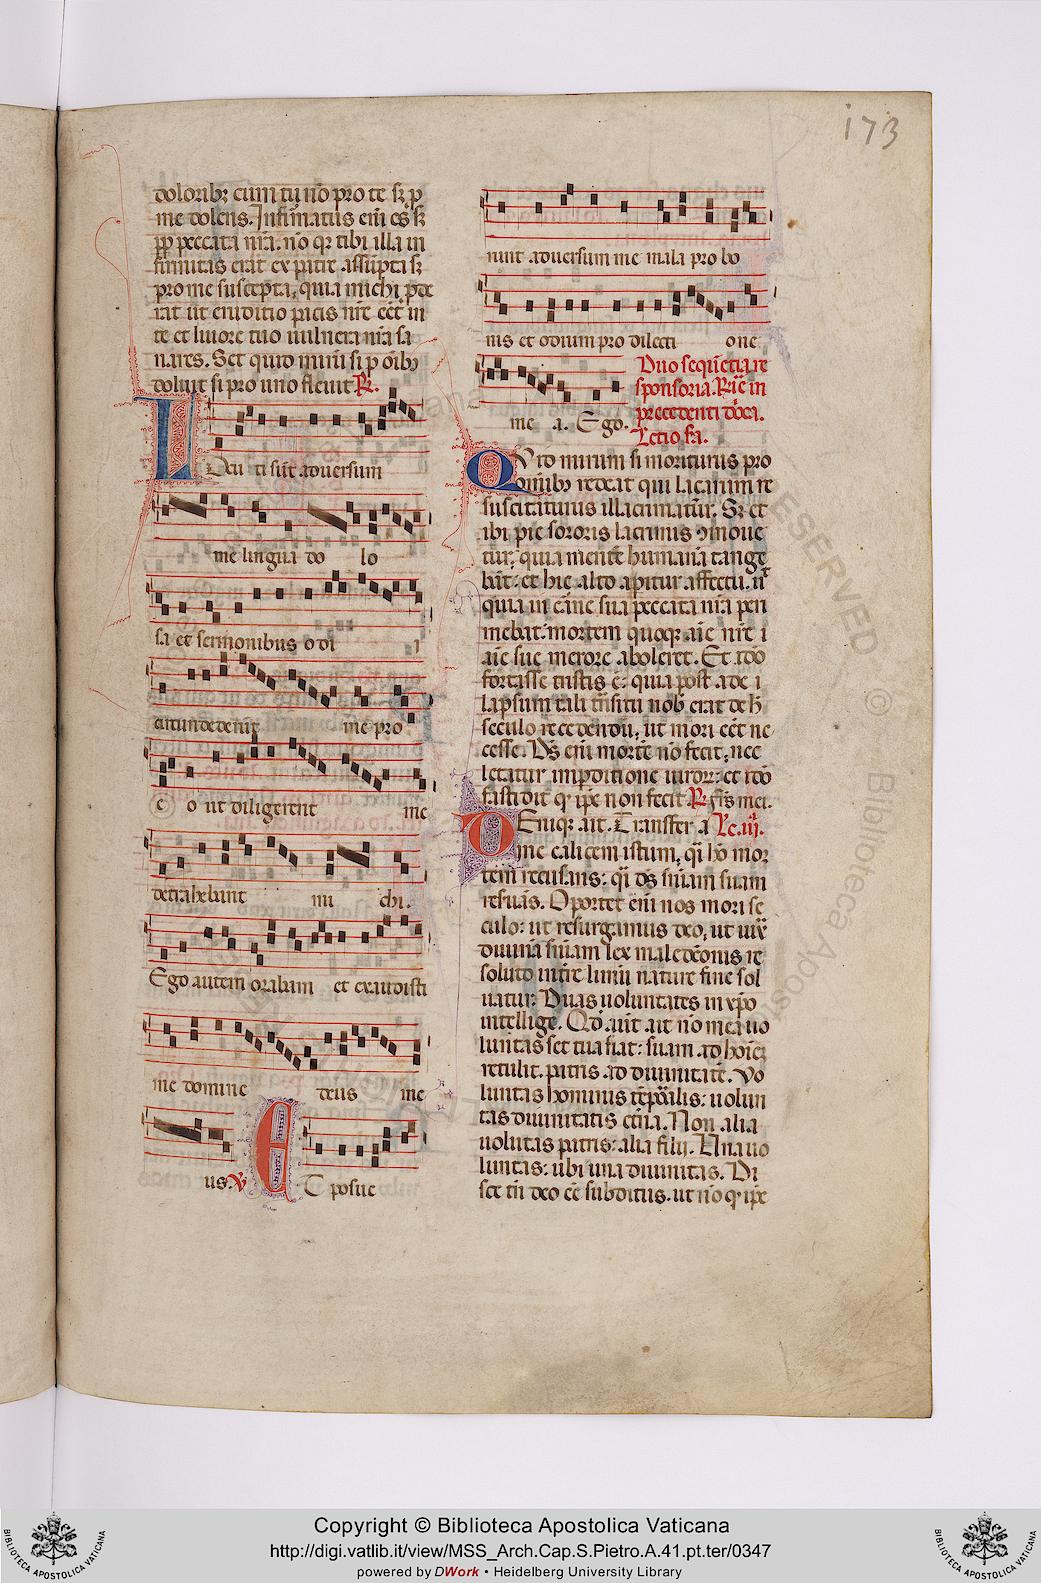 173
dolorib; cum tu nõ pro te sȝ p̱
me dolens. Infirmatus eni̅ es sȝ
p̱p̱ peccata nr̃a. nõ qȝ tibi illa in
firmitas erat ex patre assu̅pta sȝ
pro me suscepta, quia michi p̱de
rat ut eruditio pacis nr̃e eẽt in
te et livore tuo vulnera nr̃a sa
nares. Set quid miru̅ si p̱ oi̅bȝ
doluit si pro uno flevit R̷.
Locu ti su̅t adversum
me lingua do lo
sa et sermonibus odi i
circundederu̅t me pro
e o ut diligerent me
detrahebant mi chi.
Ego autem orabam et exaudisti
me domine deus me
us. V̷ ET posue
runt adversum me mala pro bo
nis et odium pro dilecti one
me a. Ego.
Duo seque̅tia re
sponsoria. R̷ie in
precedenti do̅ca.
Lectio s̃a.
Quid mirum si moriturus pro
omnibȝ redeat qui Lacarum re
suscitaturus illacrimatur. Sȝ et
ibi pie sororis lacrimis ꝯmove
tur. quia mente̅ humana̅ tange
ba̅t: et hic alto ap̱itur affectu. ut
quia in ca̅ne sua peccata nr̃a peri
mebat: mortem quoqȝ ai̅e nr̃e i
ai̅e sue merore aboleret. Et ido̅
fortasse tristis ẽ: quia post ade i
lapsum tali tra̅situ nob̅ erat de h̅
seculo recedendu̅, ut mori eẽt ne
cesse. D̅s eni̅ morte̅ nõ fecit, nec
letatur in p̱ditione viror̷: et ido̅
fastidit qḋ ip̅e non fecit R̷ fr̃s mei.
DEniqȝ ait. Transfer a Lc̃. iij.
me calicem istum, q̃i ho̅ mor
tem recusans: q̃i d̅s sn̅iam suam
reserva̅s. Oportet eni̅ nos mori se
culo: ut resurgamus deo, ut iux̃
divina̅ sn̅iam lex maledc̃onis re
soluto i̅ t̃re limu̅ nature fine sol
vatur. Duas voluntates in xp̅o
intellige. Qd̅ aut̃ ait nõ mea vo
luntas set tua fiat: suam ad hoi̅eȝ
retulit. patris ad divinitate̅. Vo
luntas hominis te̅p̱alis: volun
tas divinitatis et̃na. Non alia
voluntas patris: alia filij. Una vo
luntas: ubi una divinitas. Di
sce tn̅ deo eẽ subditus. ut nõ qḋ ip̅e
Copyright © Biblioteca Apostolica Vaticana
http://digi.vatlib.it/view/MSS_Arch.Cap.S.Pietro.A.41.pt.ter/0347
powered by DWork • Heidelberg University Library
BIBLIOTECA APOSTOLICA VATICANA
BIBLIOTECA APOSTOLICA VATICANA